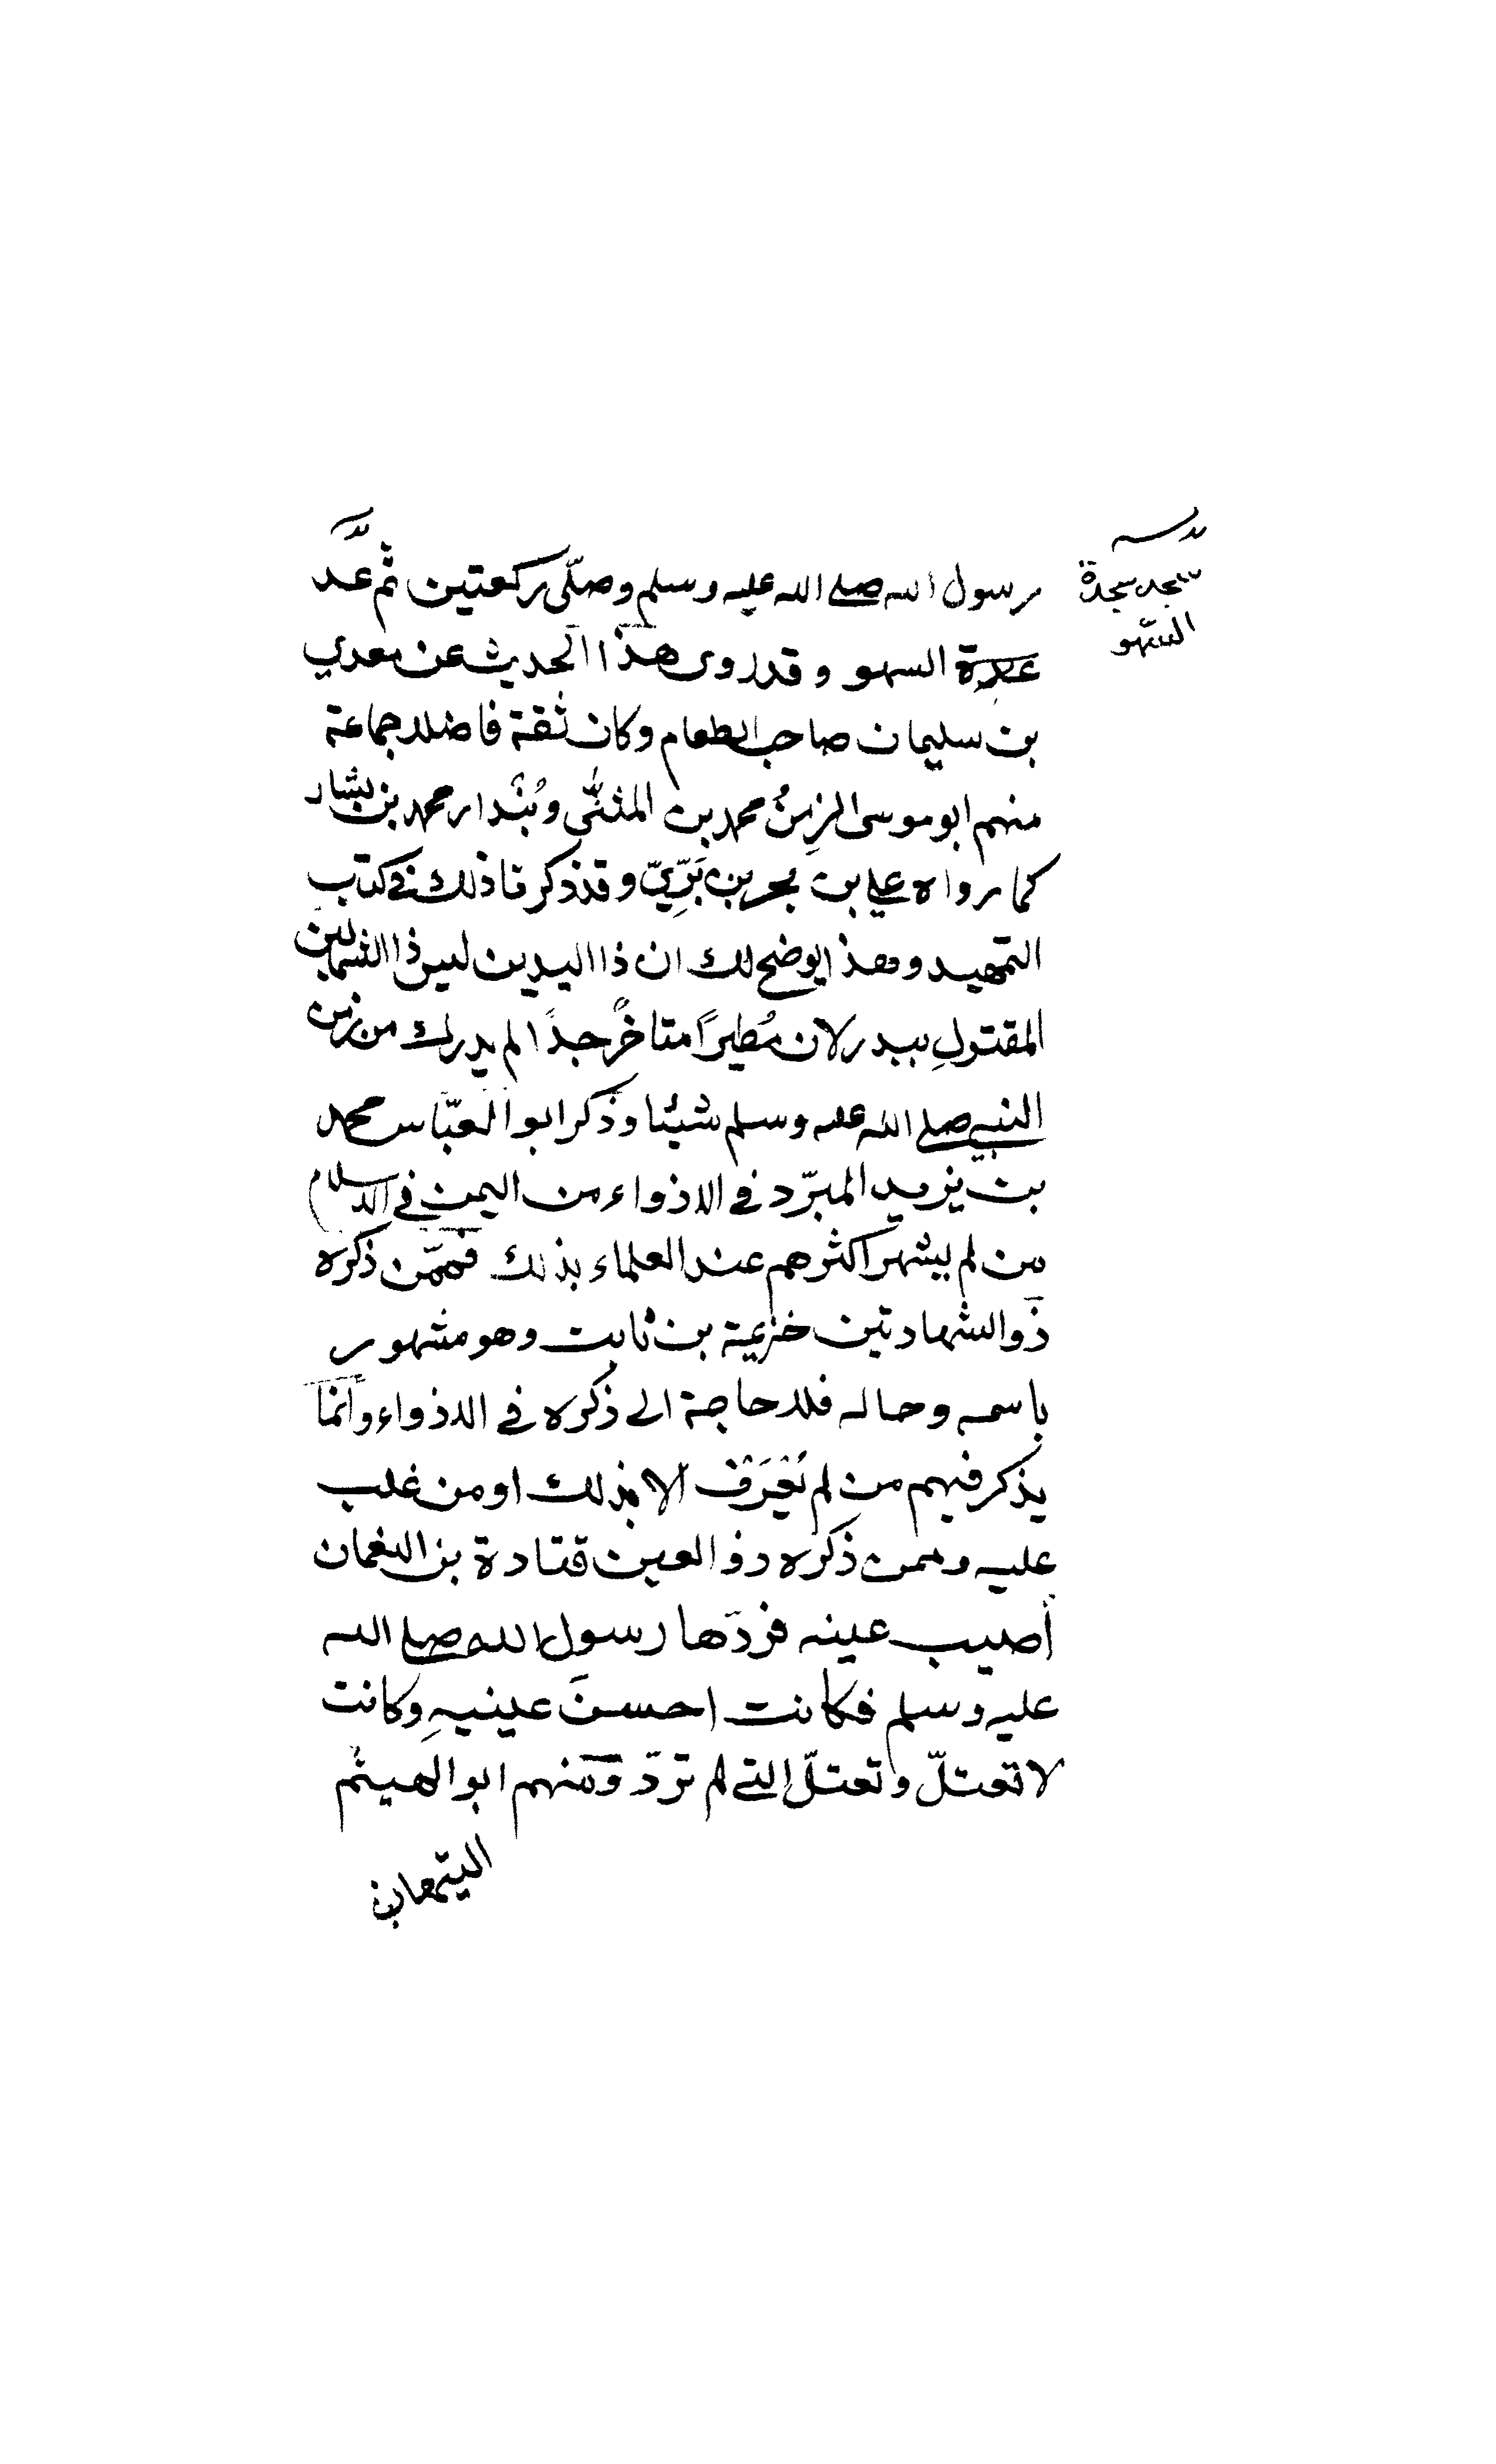 رسول الله صلى الله عليه وسلم وصلّى ركعتين ثم عدّ
عدة السهو وقد روى هذا الحديث عن معدي
بن سليمان صاحب الطعام وكان ثقة فاضلا جماعة
منهم ابو موسى الزمِنُ محمد بن المثنّى وبُنْدار محمد بن بشار
كما رواه علي بن بحر بن بَرِّيّ وقد ذكرنا ذلك في كتاب
التمهيد وهذا يوضح لك ان ذا اليدين ليس ذا الشمالين
المقتولِ ببدر لان مُطيراً متاخرٌ جداً لم يدرك من زمن
النبي صلى الله عليه وسلم شيئا وذكر ابو العبّاس محمد
بن يزيد المبرّد في الاذواء من اليمن في الاسلام
من لم يشهر اكثرهم عند العلماء بذلك فممّن ذكره
ذو الشهادتين خزيمة بن ثابت وهو مشهور
باسمه وحاله فلا حاجة الى ذكره في الاذواء وانما
يذكر فيهم من لم يُعْرَفْ الا بذلك او من غلب
عليه وممن ذكره ذو العين قتادة بن النعمان
أصيب عينه فردّها رسول الله صلى الله
عليه وسلم فكانت احسنَ عينيهِ وكانت
لا تعتلّ وتعتلّ التي لم تردّ ومنهم ابو الهيثم
سجد سجدة
السهو